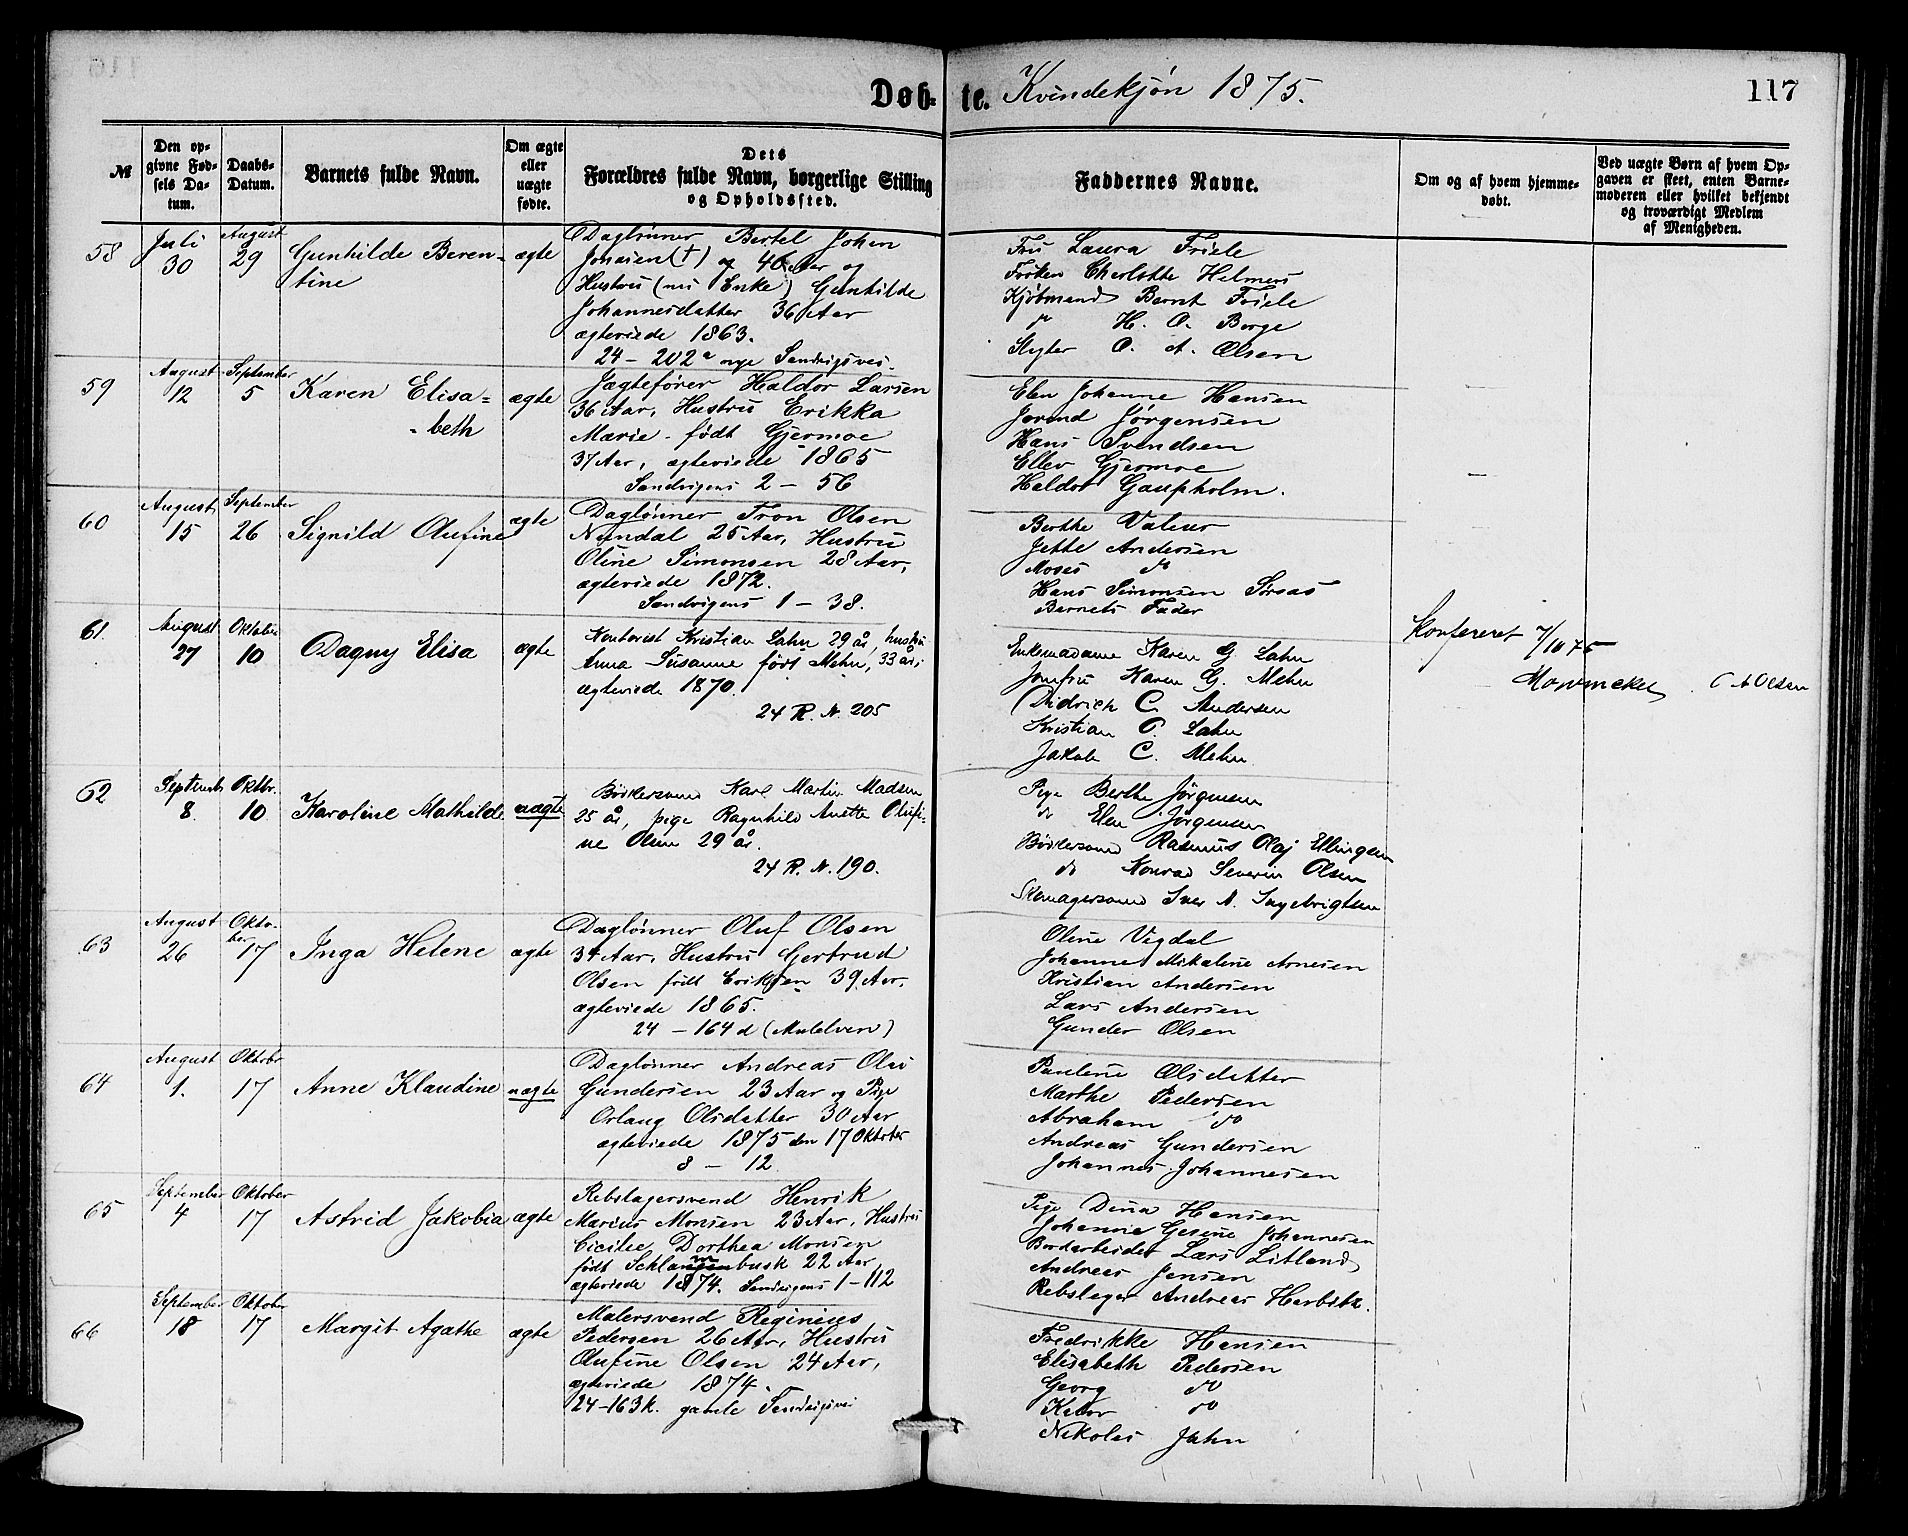 Døb- te. Kvindekjøn 1875.
117
№
Den op-
givne Fød-
sels Da-
tum.
Daabs-
Datum.
Barnets fulde Navn.
Om ægte
eller
uægte
fødte.
Dets
Forældres fulde Navn, borgerlige Stilling
og Opholdssted.
Faddernes Navne.
Om og af hvem hjemme-
døbt.
Ved uægte Børn af hvem Op-
gaven er skeet, enten Barne-
moderen eller hvilket bekjendt
og troværdigt Medlem
af Menigheden.
58
Juli
30
August
29
Gunhilde Beren-
tine
ægte
Daglønner Bertel Johan
Jonasen (†) 46 Aar og
Hustru (nu Enke) Gunhilde
Johannesdatter 36 Aar
ægteviede 1863.
24 - 202a nye Sandvigsvei.
Fru Laura Friele
Frøken Charlotte Helmers
Kjøbmand Bernt Friele
do H. O. Borge
Slagter O. A. Olsen
59
August
12
September
5
Karen Elisa-
beth
ægte
Jægtefører Haldor Larsen
36 Aar, Hustru Erikka
Marie født Gjermoe
37 Aar, ægteviede 1865
Sandvigens 2 - 56
Elen Johanne Hansen
Jorend Jørgensen
Hans Svendsen
Ellev Gjermoe
Haldor Gaupholm.
60
August
15
September
26
Signild Olufine
ægte
Daglønner Tron Olsen
Nundal 25 Aar, Hustru
Oline Simonsen 28 Aar,
ægteviede 1872.
Sandvigens 1 - 38.
Berthe Valeur
Jette Andersen
Moses do
Hans Simonsen
Barnets Fader
61
August
27
Oktober
10
Dagny Elisa
ægte
Kontorist Kristian Lahn 29 år, hustru
Anna Susanne født Mehn, 33 år,
ægteviede 1870.
24 R. N. 205
Enkemadame Karen G. Lahn
Jomfru Karen G. Mehn
Didrich C. Andersen
Kristian O. Lahn
Jakob C. Mehn
Konfereret 7/10 75
C A Olsen
62
Septemb
8
Oktbr.
10
Karoline Mathilde
uægte
Bødkersvend Karl Martin Madsen
25 år, pige Ragnhild Anette Olufi-
ne Olsen 29 år.
24 R. N. 190.
Pige Berthe Jørgensen
do Elen Jørgensen
Bødkersvend Rasmus Olaj Ellingsen
do Konrad Severin Olsen
Skomagersvend Iver N. Ingebrigtsen
63
August
26
Okto-
ber
17
Inga Helene
ægte
Daglønner Oluf Olsen
34 Aar, Hustru Gertrud
Olsen født Eriksen 39 Aar,
ægteviede 1865.
24 - 164 d (Mulelven)
Oline Vigdal
Johanne Mikaline Arnesen
Kristian Andersen
Lars Andersen
Gunder Olsen
64
August
1.
Oktobr
17
Anne Klaudine
uægte
Daglønner Andreas Olai
Gundersen 23 Aar og Pige
Orlaug Olsdatter 30 Aar
ægteviede 1875 den 17 Oktober
8 - 12
Pauline Olsdatter
Marthe Pedersen
Abraham do
Andreas Gundersen
Johannes Johannesen
65
September
4
Oktober
17
Astrid Jakobia
ægte
Rebslagersvend Henrik
Marius Monsen 23 Aar, Hustru
Cicilie Dorthea Monsen
født Schlambusk 22 Aar
ægteviede 1874. Sandvigens 1 - 112
Pige Dina Hansen
Johanne Gesine Johannesen
Bordarbeider Lars Litland
Andreas Jensen
Rebslager Andreas Herbitz.
66
September
18
Oktober
17
Margit Agathe
ægte
Malersvend Reginius
Pedersen 26 Aar, Hustru
Olufine Olsen 24 Aar,
ægteviede 1874.
24-163k. gamle Sandvigsvei
Fredrikke Hansen
Elisabeth Pedersen
Georg do
do
Nikolai Jahn